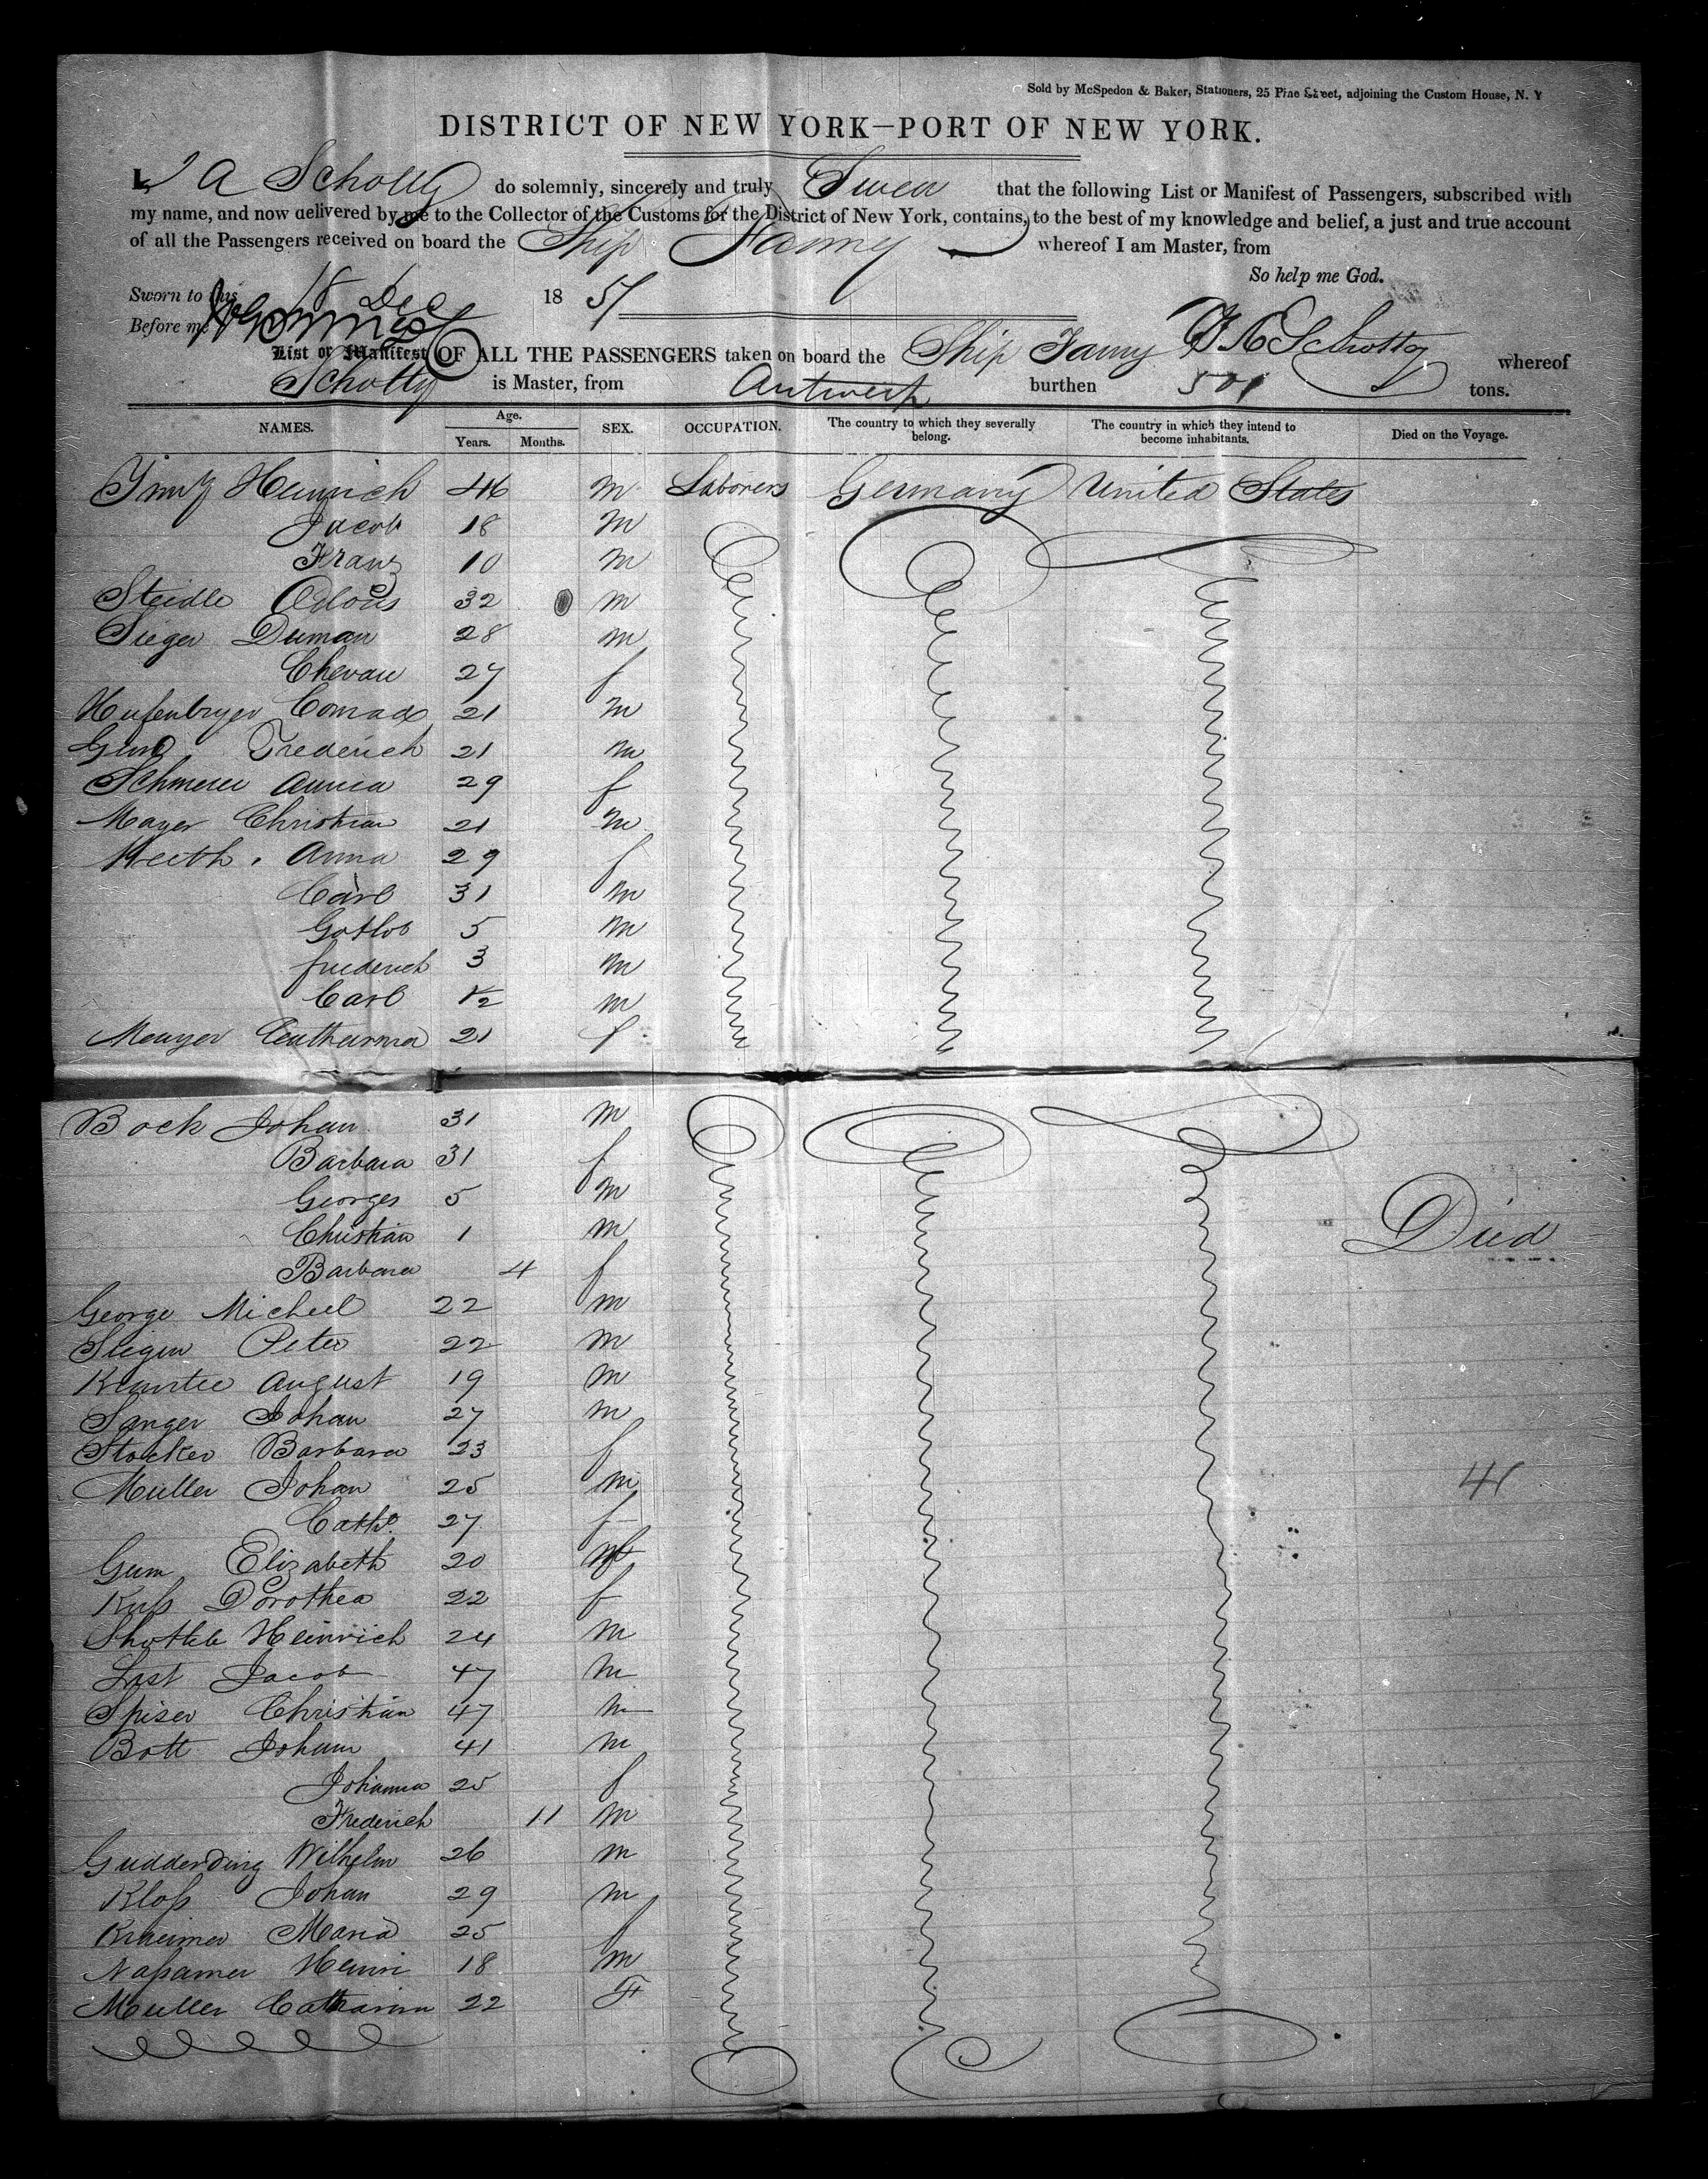 Sold by McSpedon & Baker, Stationers, 25 Pine Street, adjoining the Custom House, N. Y
DISTRICT OF NEW YORK—PORT OF NEW YORK.
I, A Scholty do solemnly, sincerely and truly Swear that the following List or Manifest of Passengers, subscribed with
my name, and now delivered by me to the Collector of the Customs for the District of New York, contains, to the best of my knowledge and belief, a just and true account
of all the Passengers received on board the Ship Fanny whereof I am Master, from
So help me God.
Sworn to this 18 Dec 1851
Before me
List or Manifest OF ALL THE PASSENGERS taken on board the Ship Fanny whereof
Scholty is Master, from Antwerp burthen 501 tons.
NAMES. Age. Years. Months. SEX. OCCUPATION. The country to which they severally belong. The country in which they intend to become inhabitants. Died on the Voyage.
Heinrich 46 m Laborers Germany United States
Jacob 18 m
Franz 10 m
Steidle 32 m
Sieger Duman 28 m
27 f
Conrad 21 m
Frederich 21 m
29 f
Mayer Christian 21 m
Anna 29 f
Carl 31 m
Gotlob 5 m
frederich 3 m
Carl 1/2 m
Meuyer Catharina 21 f
Bock Johan 31 m
Barbara 31 f
Georges 5 m
Christian 1 m Died
Barbara 4 f
George Micheel 22 m
Peter 22 m
August 19 m
Sanger Johan 27 m
Stocker Barbara 23 f
Muller Johan 25 m 41
Cath 27 f
Gum Elizabeth 20 f
Kuß Dorothea 22 f
Heinrich 24 m
Last Jacob 47 m
Spiser Christian 47 m
Bott Johann 41 m
Johanna 25 f
Frederich 11 m
Gudderding Wilhelm 26 m
Kloß Johan 29 m
Maria 25 f
Henri 18 m
Muller Catharina 22 F